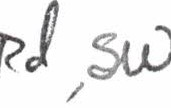 Rd, SW